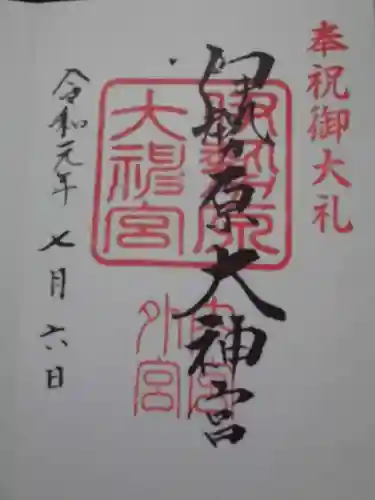 奉祝御大礼
伊勢原大神宮
伊勢原
大神宮
内宮
外宮
令和元年 七月六日